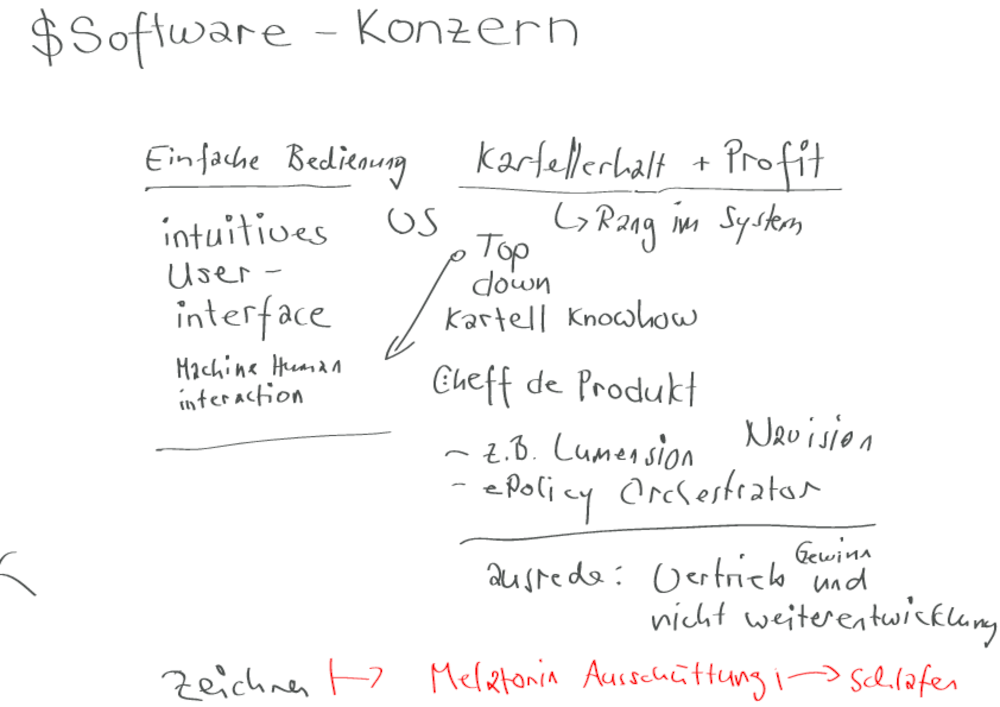 $Software - Konzern
Einfache Bedienung
intuitives
User -
interface
Machine Human
interaction
US
Kartellerhalt + Profit
↳ Rang im System
Top
down
Kartell Knowhow
Cheff de Produkt
- z.B. Lumension Navision
- ePolicy Orchestrator
ausrede: Vertrieb Gewinn und
nicht weiterentwicklung
Zeichnen ↦ Melatonin Ausschüttung ↦ schlafen